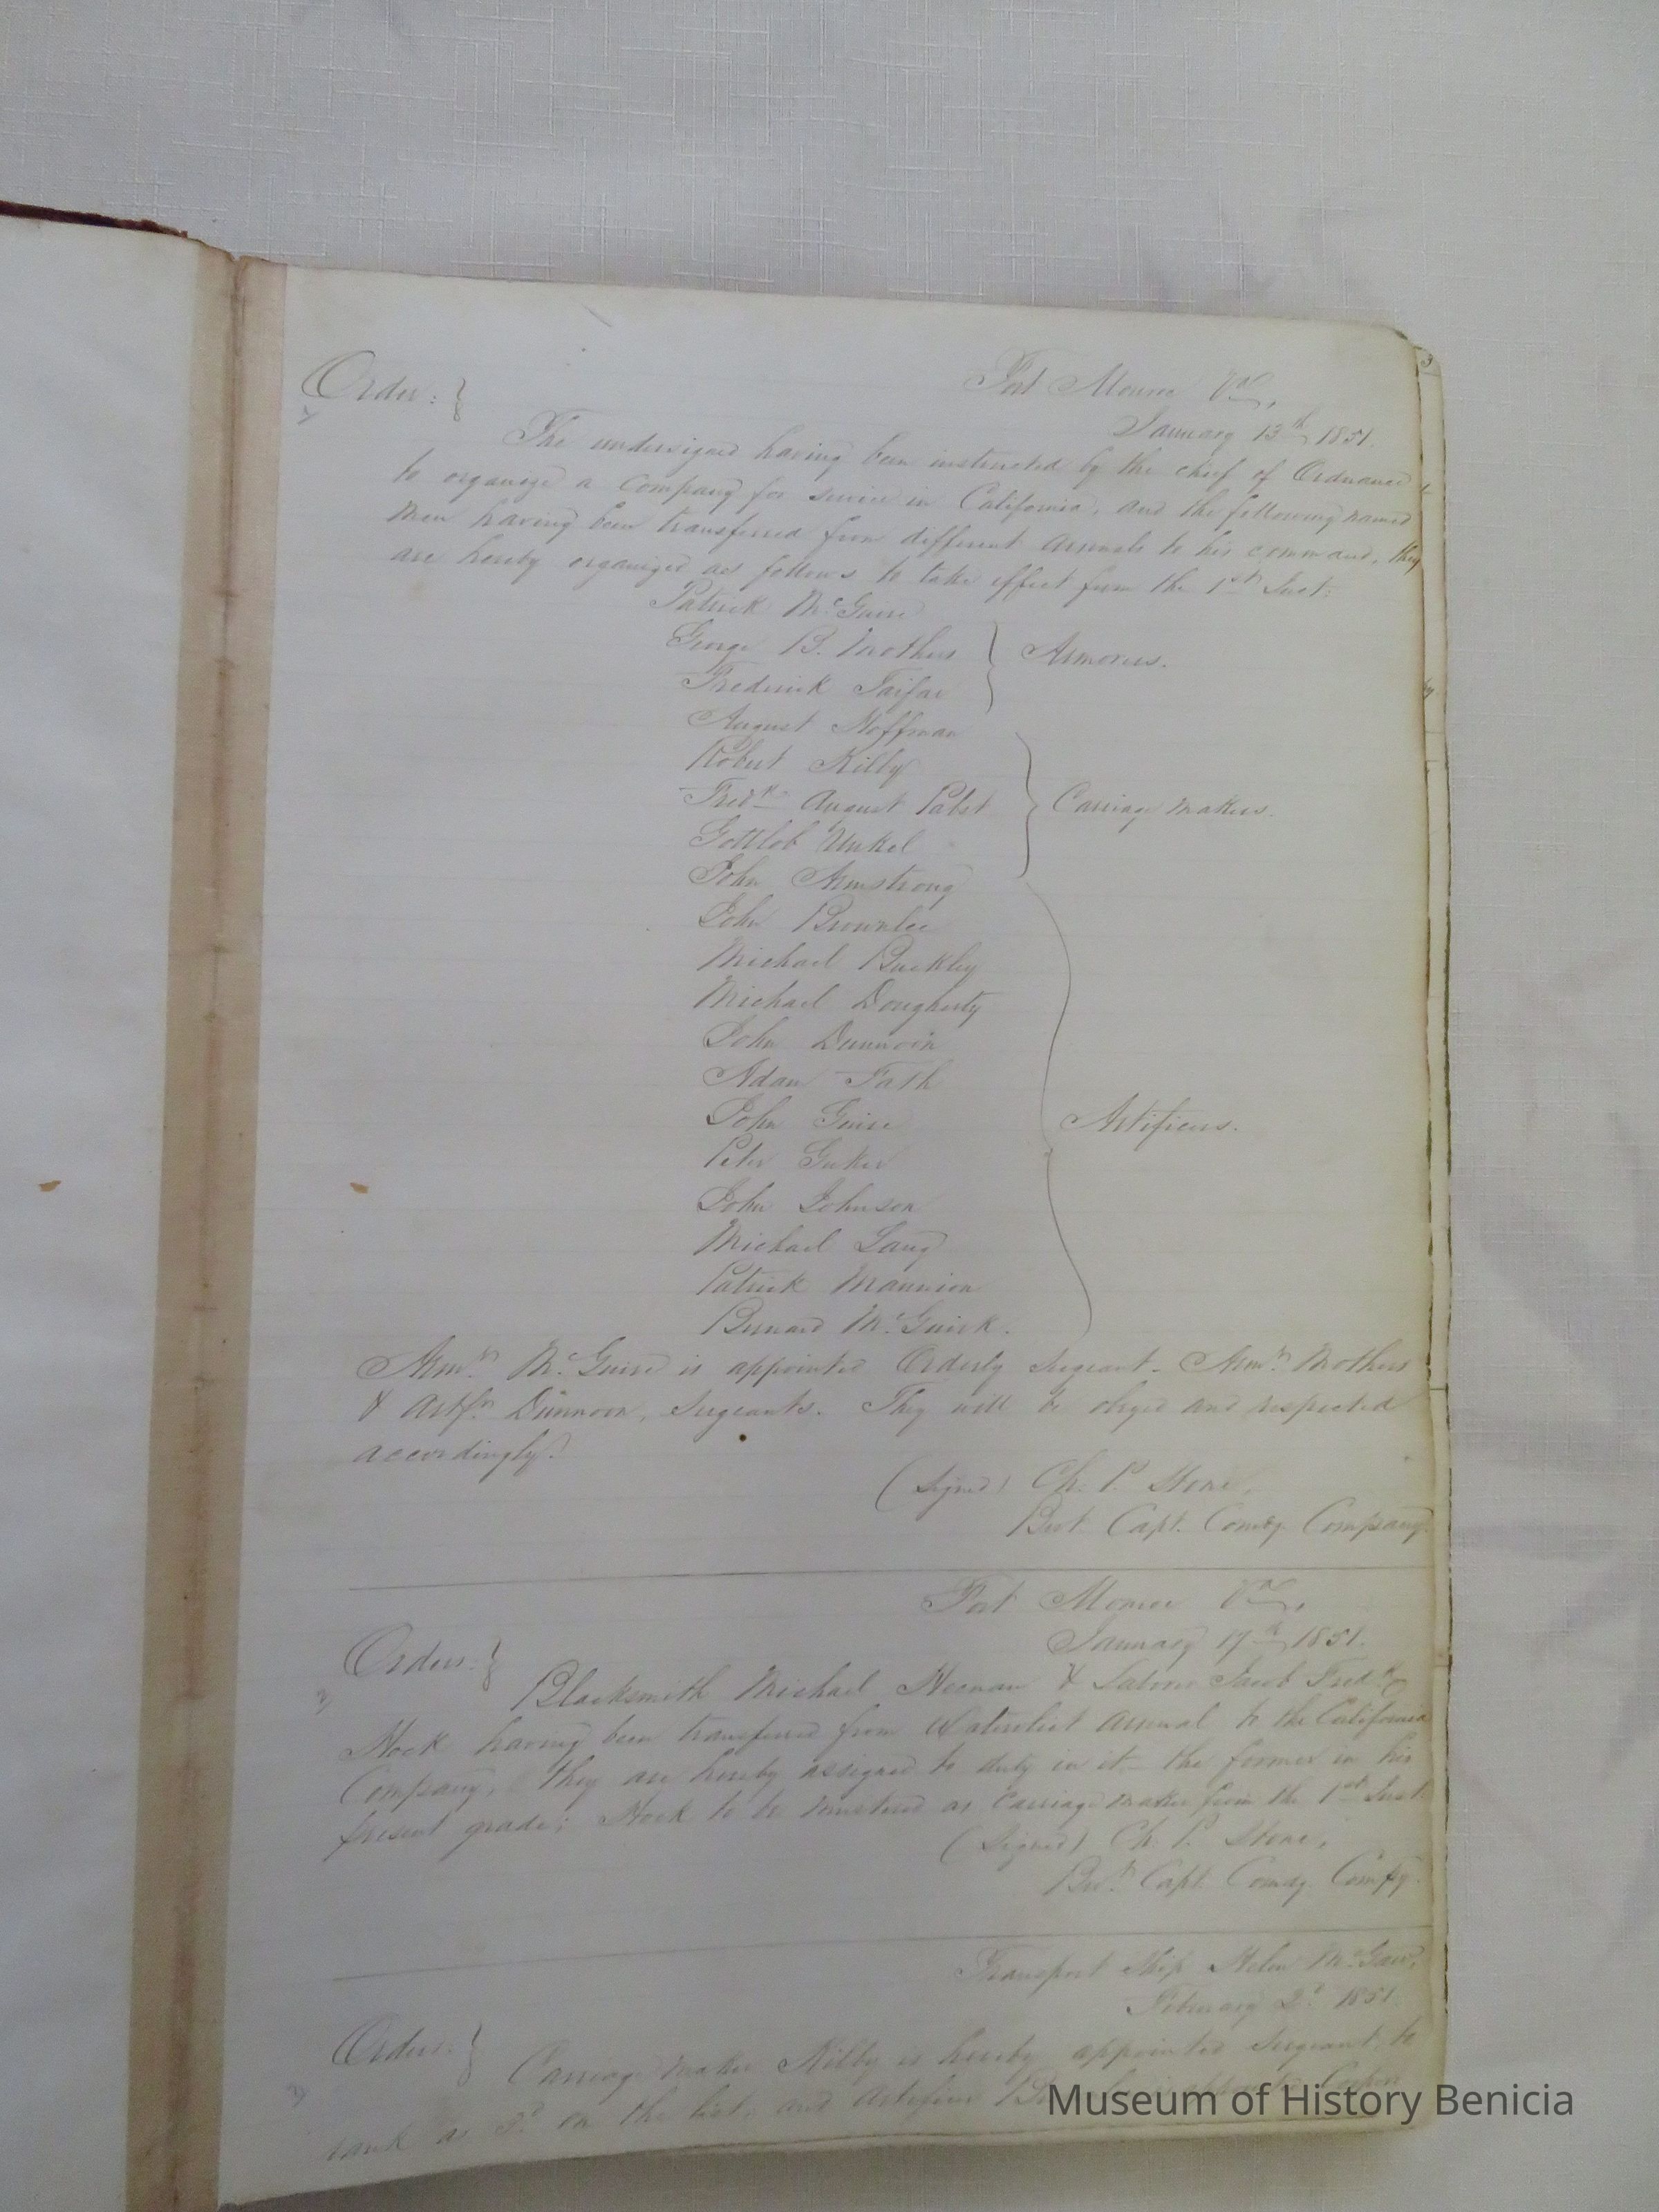 Fort Monroe Va,
Order:
January 13th 1851.
The undersigned having been instructed by the chief of Ordnance
to organize a Company for service in California, and the following named
men having been transferred from different Arsenals to his command, they
are hereby organized as follows to take effect from the 1st Inst:
Patrick McGuire
George B. Mothers
Armorers.
Frederick
August Hoffman
Robert Kilby
Fredk August Pabst
Carriage makers.
Gottlob Unkel
John Armstrong
John Brownlee
Michael Buckley
Michael Dougherty
John Dunnoon
Adam Fath
John Guire
Artificers.
Peter
John Johnson
Michael Lang
Patrick Mannion
Bernard McGuirk.
Armr. McGuire is appointed Orderly Sergeant - Armr. Mothers
& Artfr. Dunnoon, Sergeants. They will be obeyed and respected
accordingly.
(Signed) Ch. P. Stone,
Bvt. Capt. Comdg. Company.
Fort Monroe Va,
January 17th 1851.
Orders.
Blacksmith Michael & Jacob Fredk
Hock having been transferred from Watervliet Arsenal to the California
Company, they are hereby assigned to duty in it - the former in his
present grade; Hock to be mustered as Carriage maker from the 1st Inst.
(Signed) Ch. P. Stone,
Bvt. Capt. Comdg. Compy.
Transport Ship Helen McGaw,
February 2d 1851
Orders.
3
Carriage maker Kilby is hereby appointed Sergeant, to
rank as 3d on the list, and Artificer
Museum of History Benicia